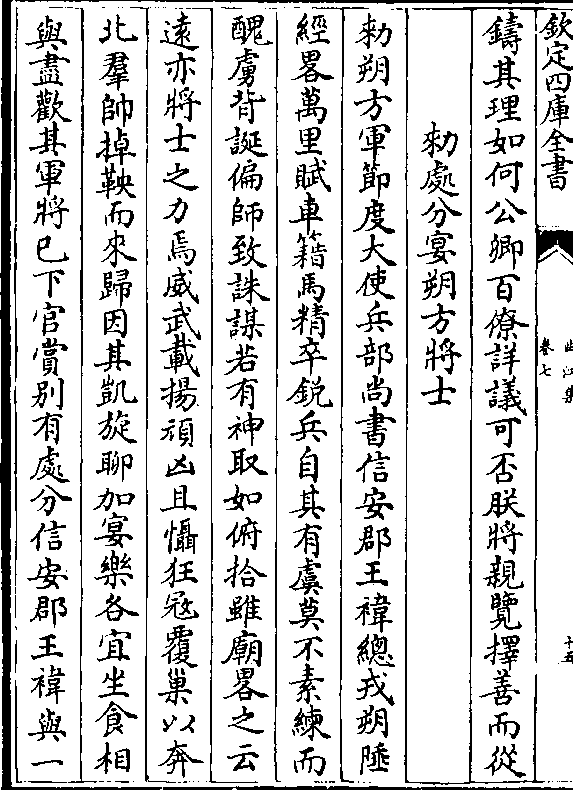 欽定四庫全書
曲江集
卷七
十五
鑄其理如何公卿百僚詳議可否朕將親覽擇善而從
勑處分宴朔方將士
勑朔方軍節度大使兵部尚書信安郡王禕總戎朔陲
經畧萬里賦車籍馬精卒銳兵自其有虞莫不素練而
醜虜背誕偏師致誅謀若有神取如俯拾雖廟畧之云
遠亦將士之力焉威武載揚頑凶且懾狂冦覆巢以奔
北羣帥掉鞅而來歸因其凱旋聊加宴樂各宜坐食相
與盡歡其軍將已下官賞别有處分信安郡王禕與一